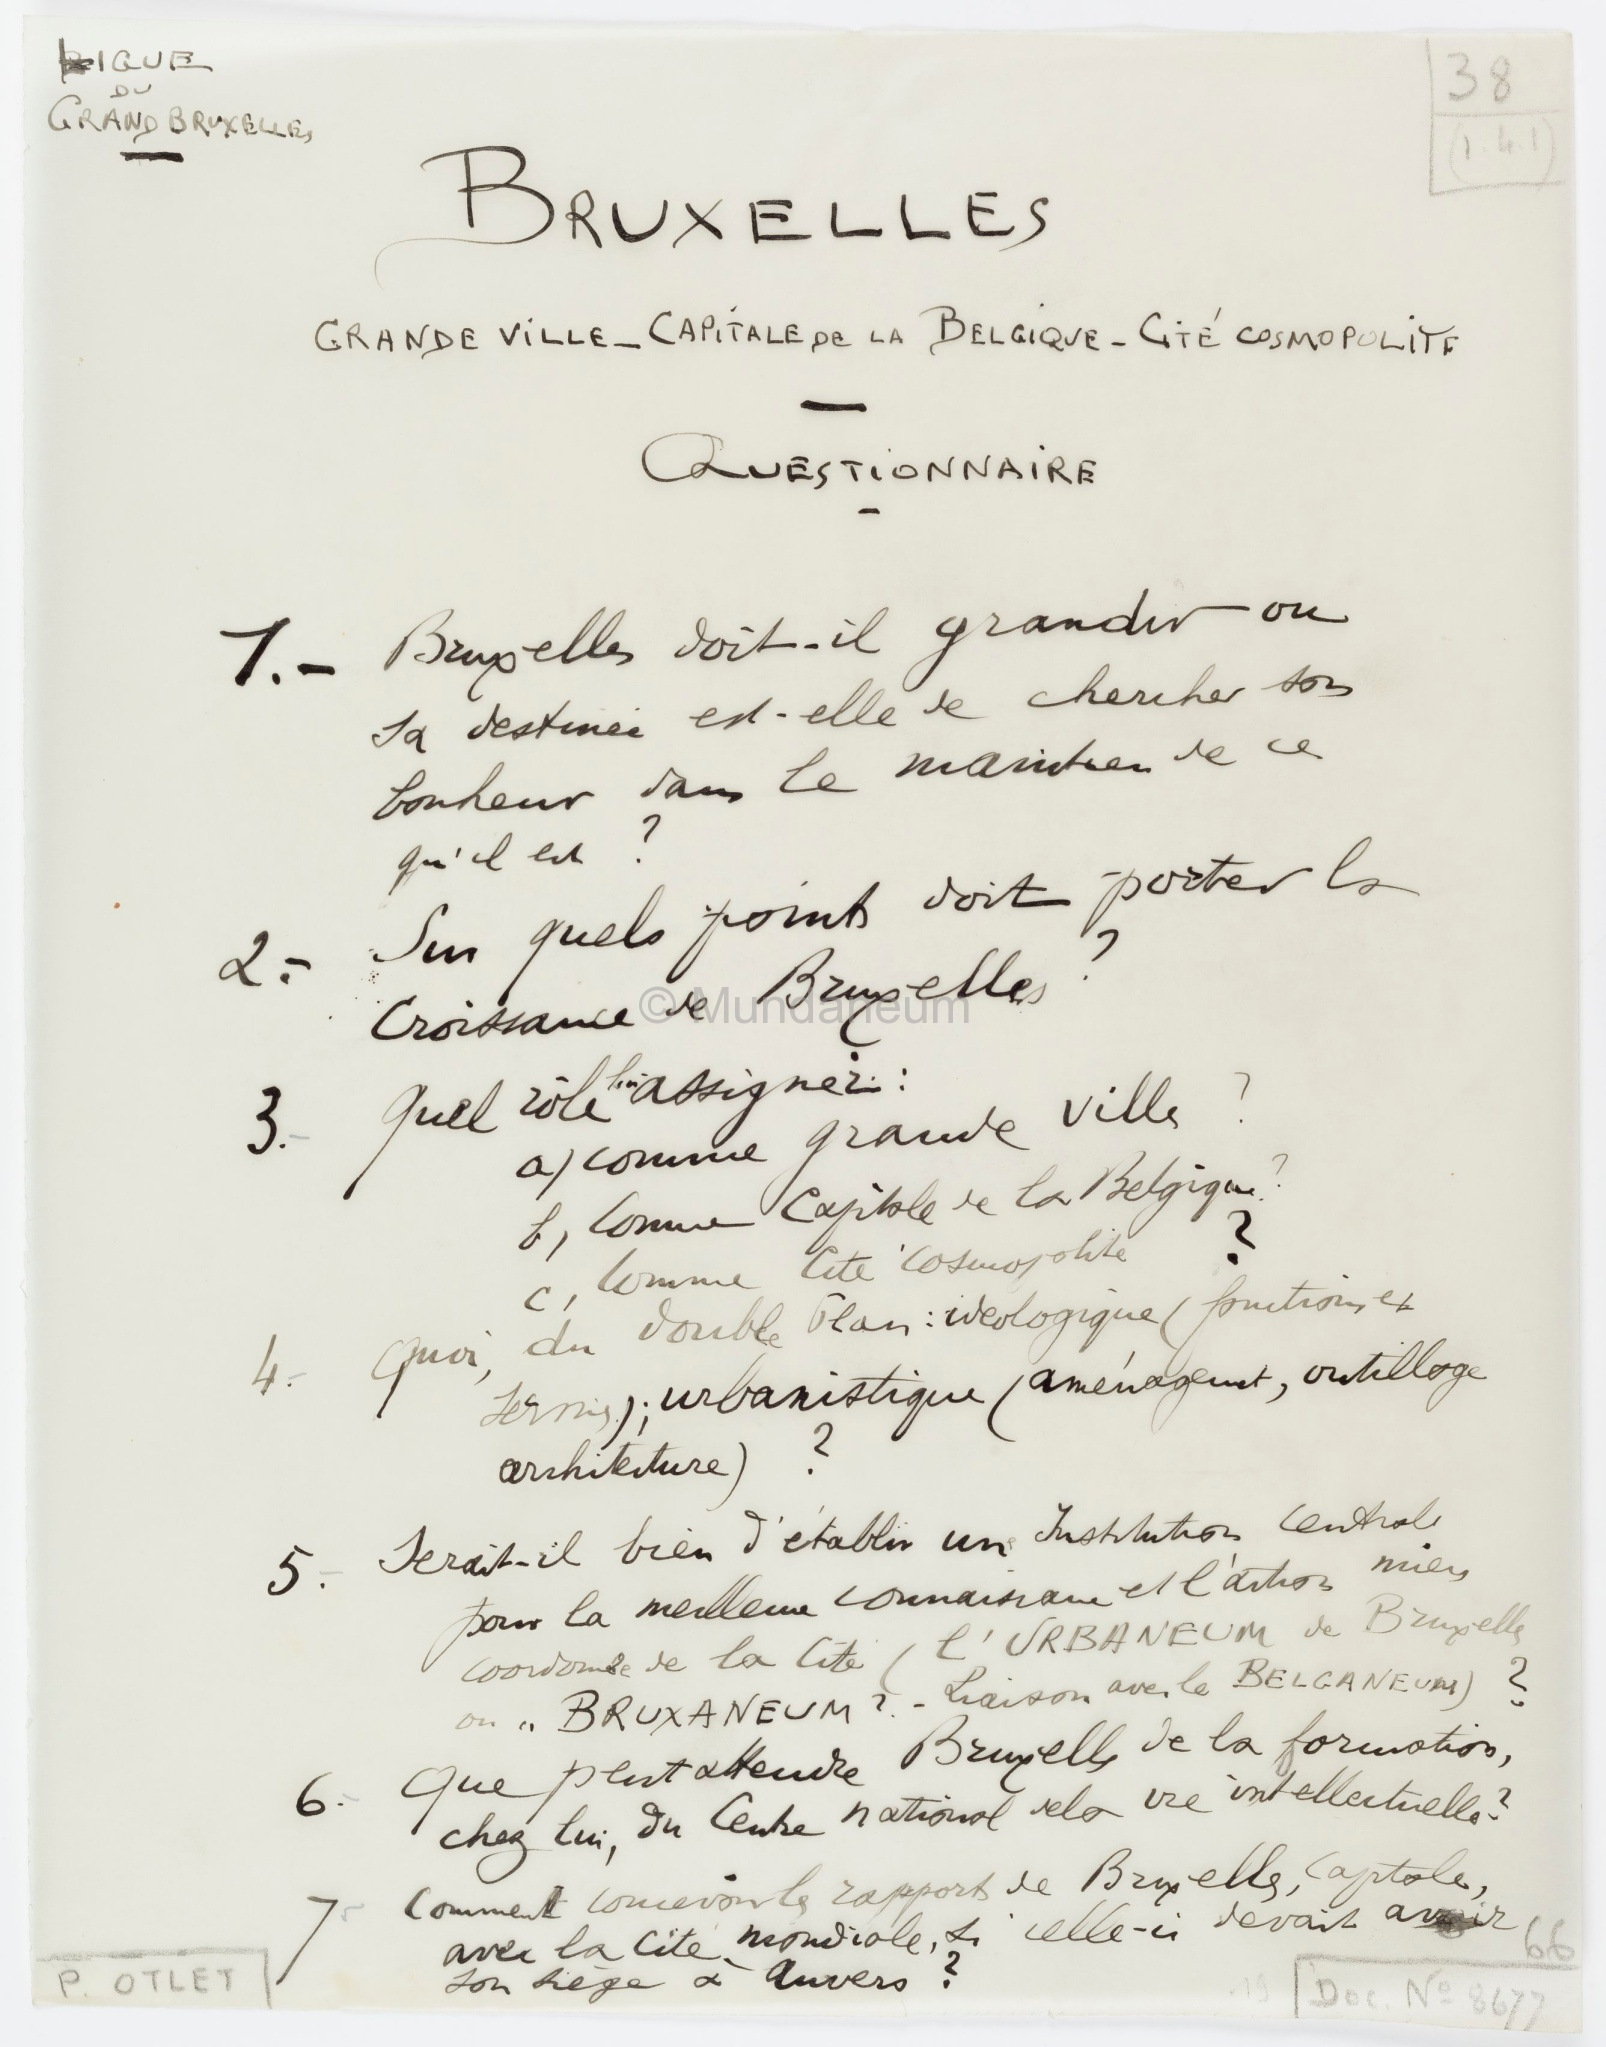 LIGUE
DU
GRAND BRUXELLES
38
(1.4.1)
BRUXELLES
GRANDE VILLE - CAPITALE DE LA BELGIQUE - CITÉ COSMOPOLITE
QUESTIONNAIRE
1.- Bruxelles doit-il grandir ou
sa destinée est-elle de chercher son
bonheur dans le maintien de ce
qu'il est ?
2.- Sur quels points doit porter la
Croissance de Bruxelles ?
© Mundaneum
3.- Quel rôle lui assigner :
a) comme grande ville ?
b, comme Capitale de la Belgique ?
c, comme Cité cosmopolite ?
4.- Quoi, du double Plan : idéologique (fonctions et
services) ; urbanistique (aménagement, outillage
architecture) ?
5.- Serait-il bien d'établir une Institution centrale
pour la meilleure connaissance et l'action mieux
coordonnée de la Cité (l'URBANEUM de Bruxelles
ou " BRUXANEUM ? - Liaison avec le BELGANEUM) ?
6.- Que peut attendre Bruxelles de la formation,
chez lui, du Centre national de la vie intellectuelle ?
7- Comment concevoir les rapports de Bruxelles, Capitale,
avec la Cité mondiale, si celle-ci devait avoir
son siège à Anvers ?
66
P. OTLET
19
Doc. No 8677